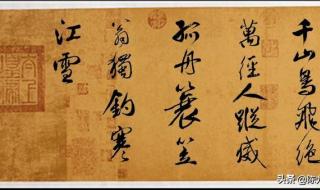 千山鳥飛絕
萬徑人蹤滅
孤舟蓑笠
翁獨釣寒
江雪
头条 @陈